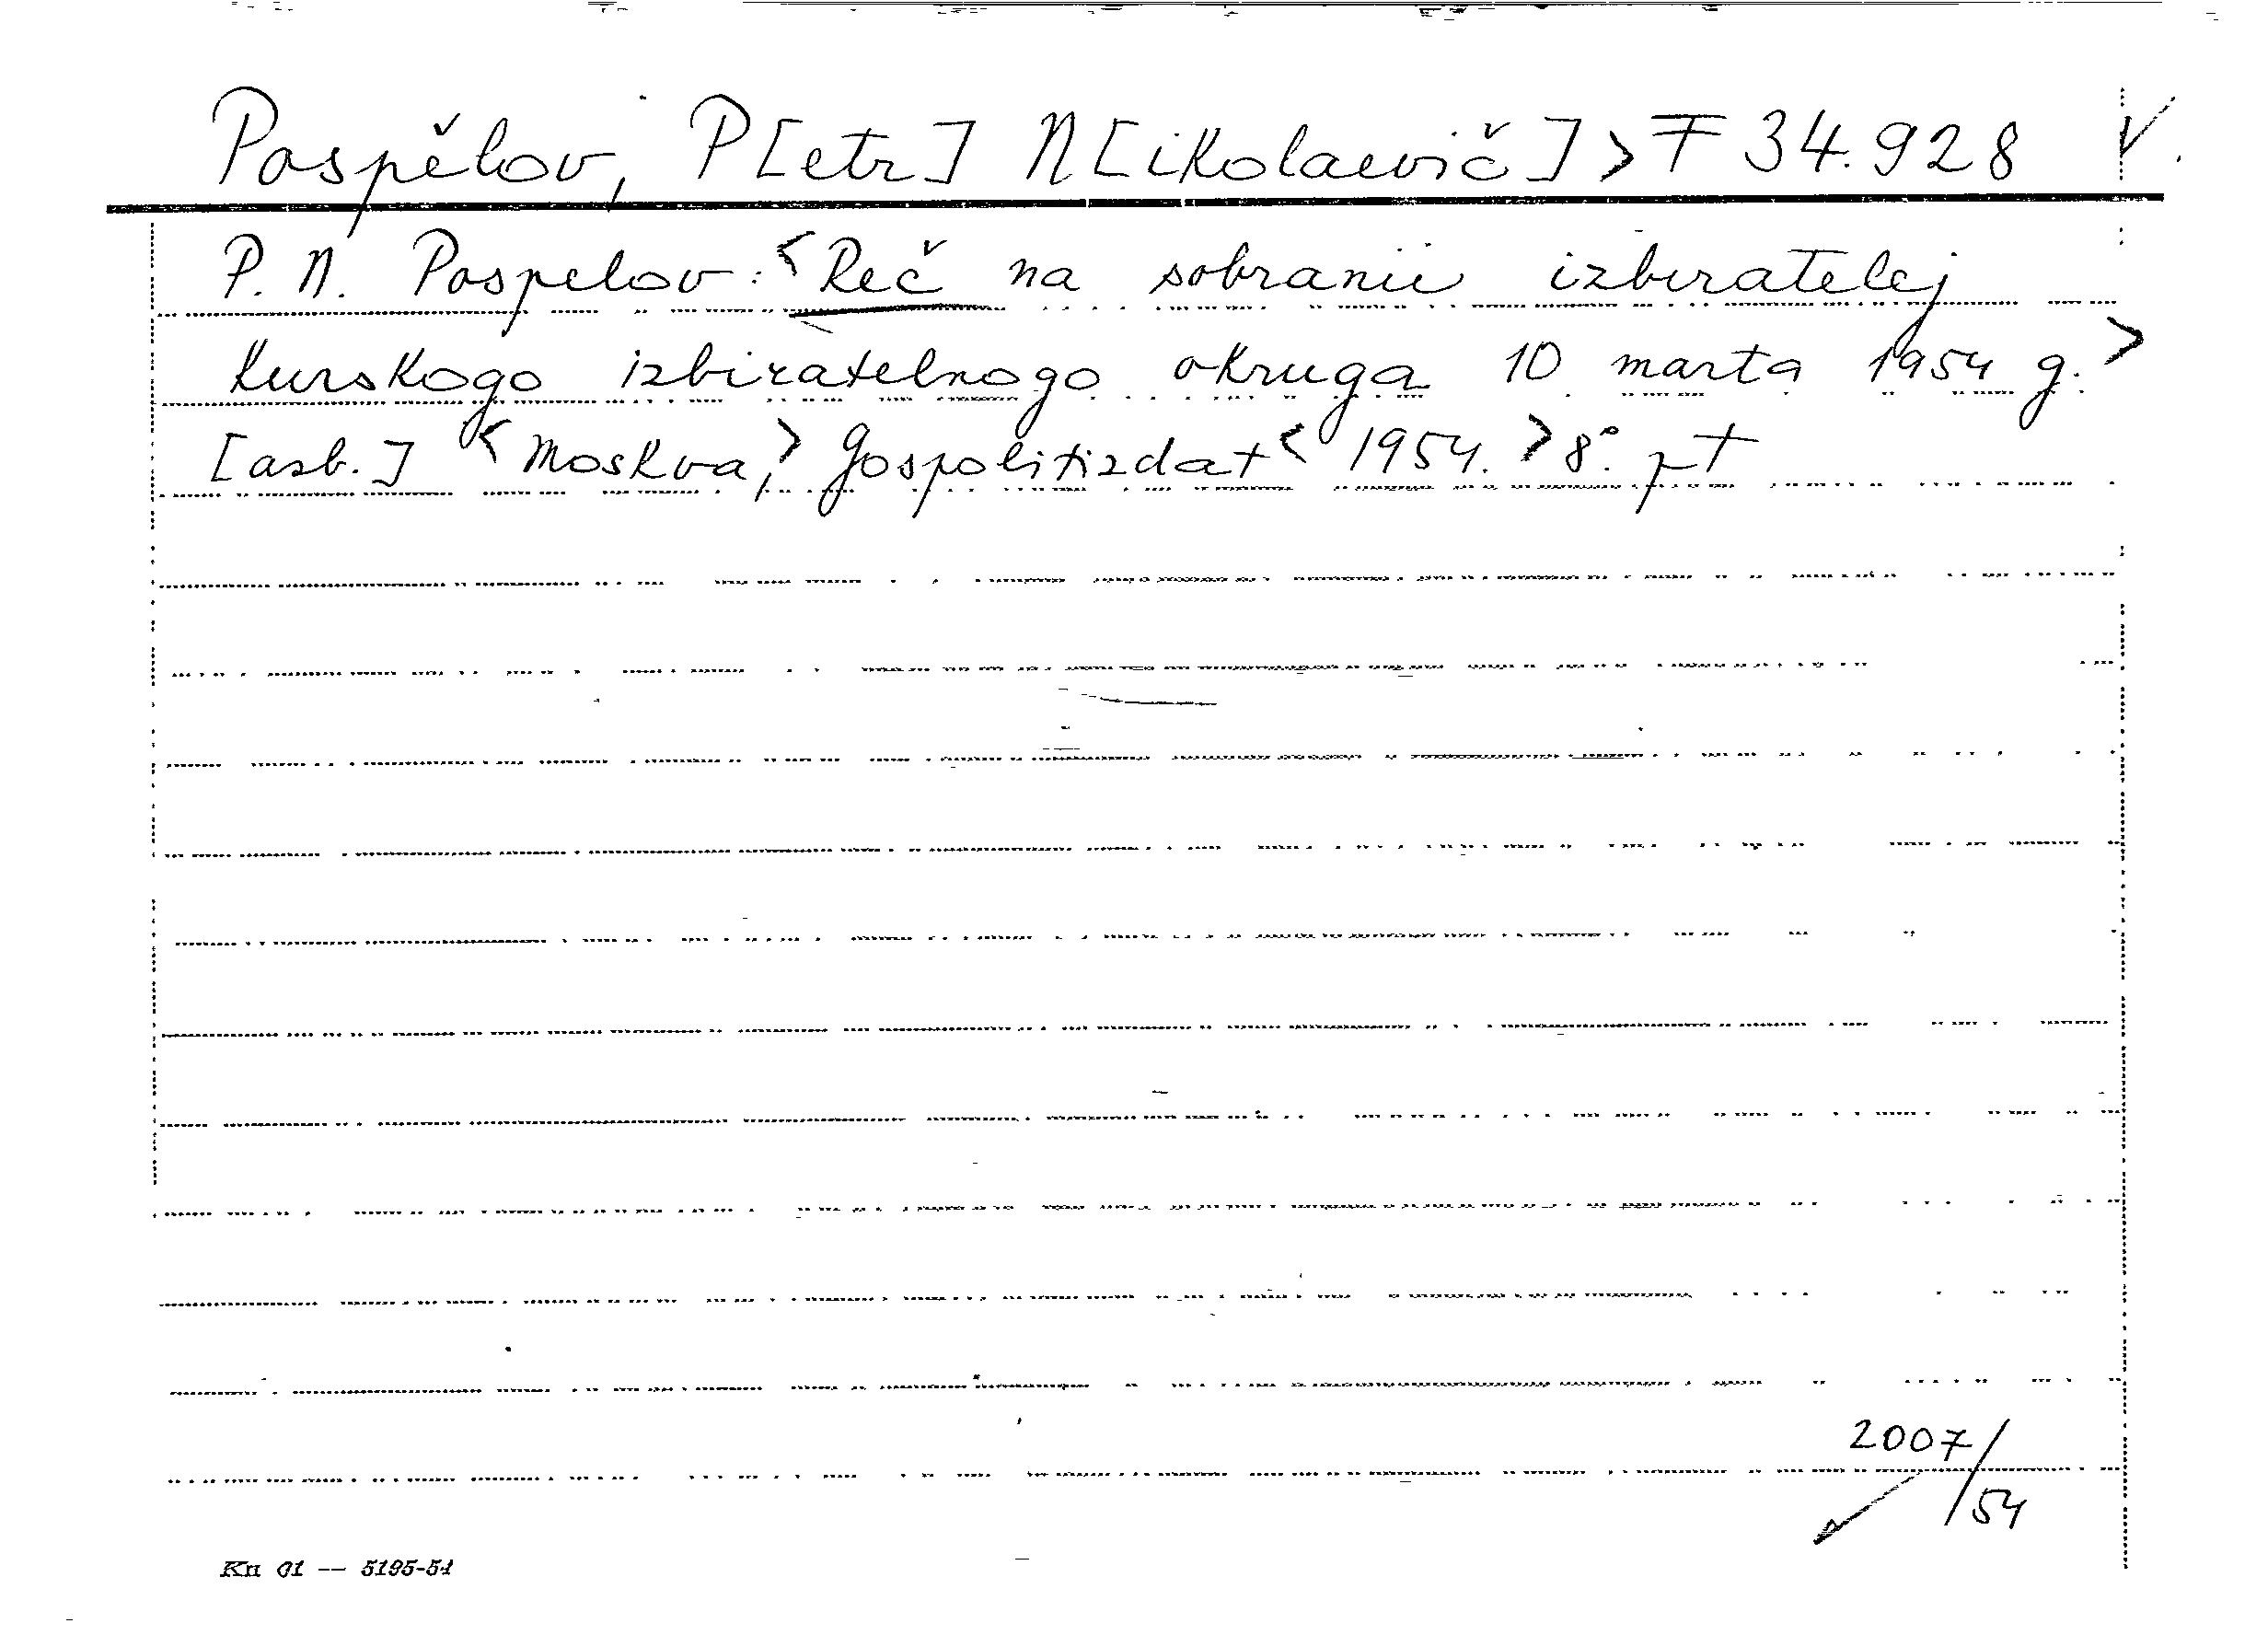 Pospělov, P[etr] N[ikolaevič] > F 34.928 V.
P. N. Pospelov: <Reč na sobranii izbiratelej
Kurskogo izbiratelnogo okruga 10 marta 1954 g.>
[azb.] <Moskva,> Gospolitizdat <1954.> 8°. pt
2007/54
Kn 01 — 5195-54